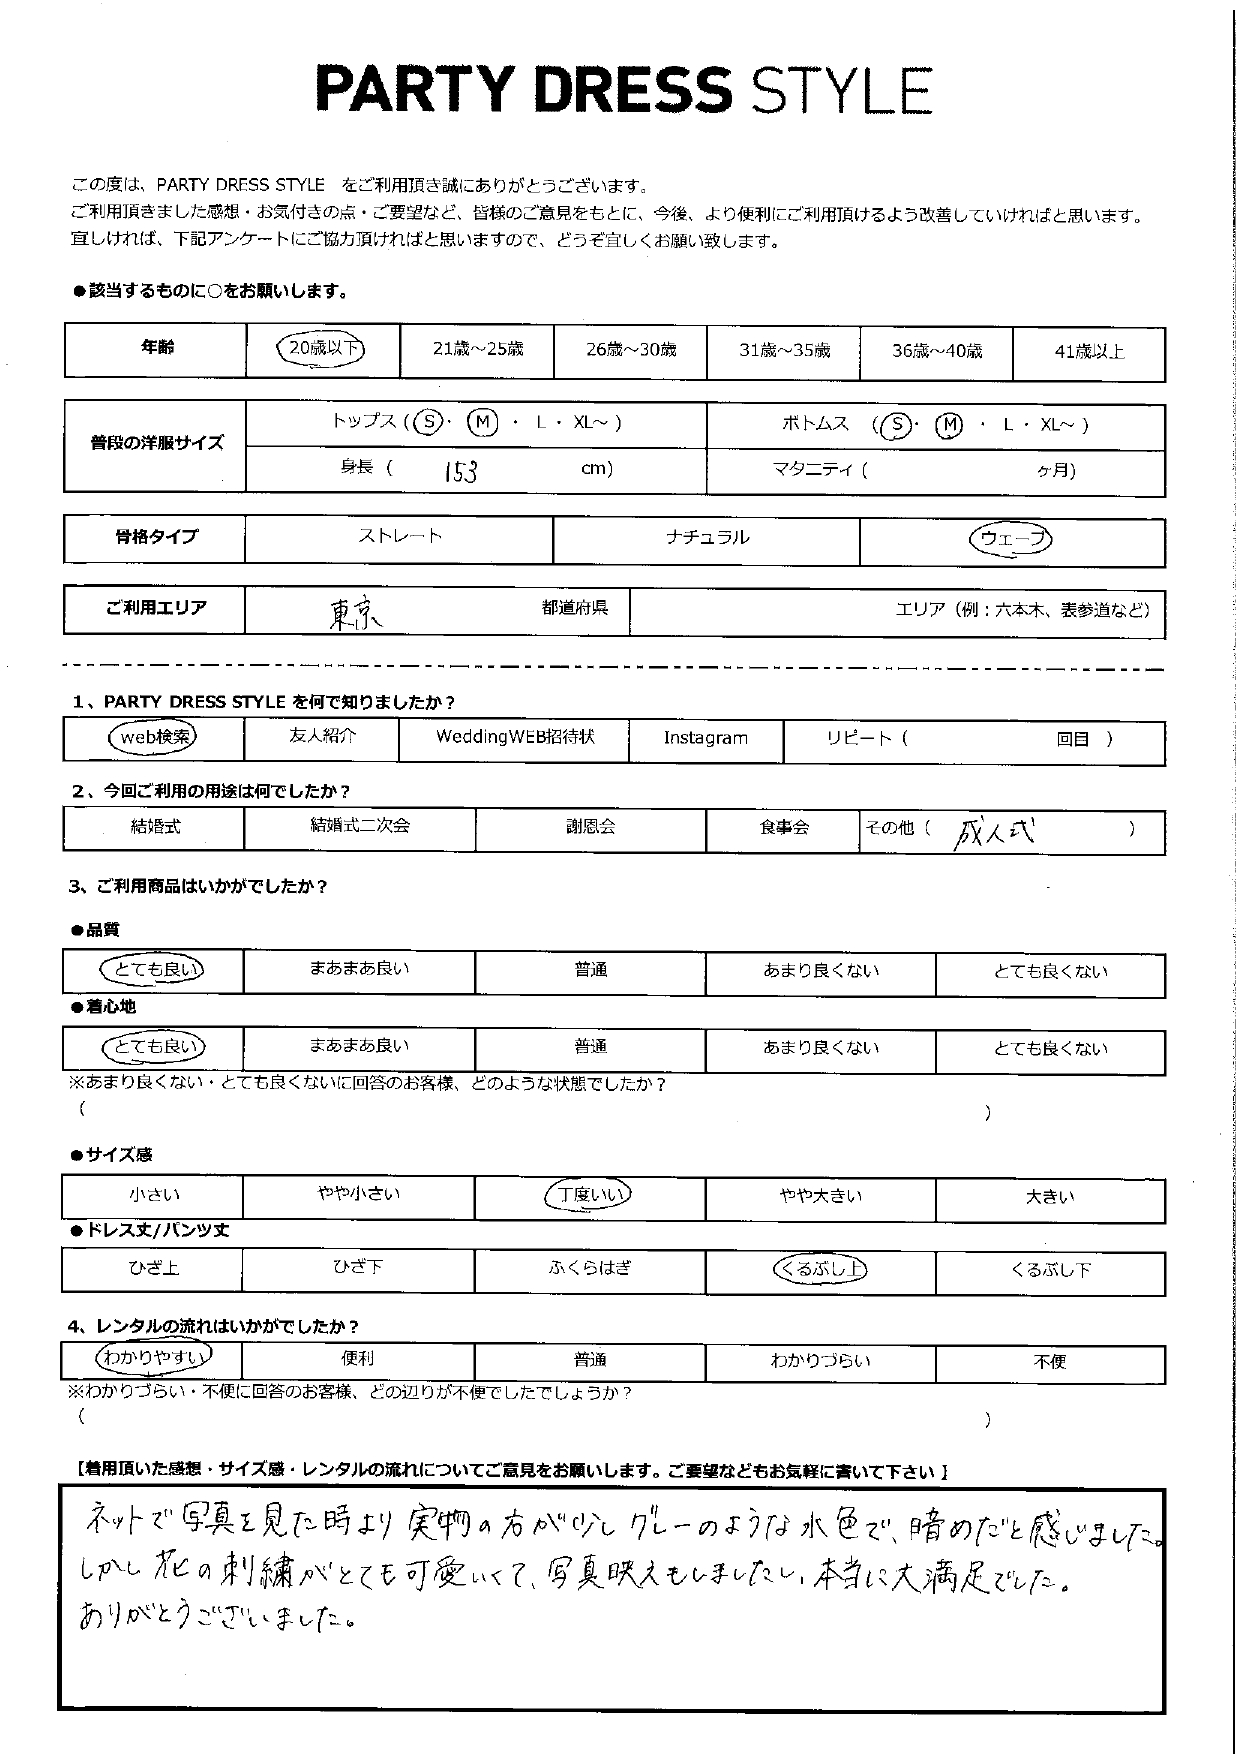 PARTY DRESS STYLE
この度は、PARTY DRESS STYLE をご利用頂き誠にありがとうございます。
ご利用頂きました感想・お気付きの点・ご要望など、皆様のご意見をもとに、今後、より便利にご利用頂けるよう改善していければと思います。
宜しければ、下記アンケートにご協力頂ければと思いますので、どうぞ宜しくお願い致します。
●該当するものに○をお願いします。
年齢 20歳以下 21歳～25歳 26歳～30歳 31歳～35歳 36歳～40歳 41歳以上
普段の洋服サイズ
トップス ( S ・ M ・ L ・ XL～ ) ボトムス ( S ・ M ・ L ・ XL～ )
身長 ( 153 cm) マタニティ ( ヶ月)
骨格タイプ ストレート ナチュラル ウェーブ
ご利用エリア 東京 都道府県 エリア（例：六本木、表参道など）
1、PARTY DRESS STYLE を何で知りましたか？
web検索 友人紹介 WeddingWEB招待状 Instagram リピート ( 回目 )
2、今回ご利用の用途は何でしたか？
結婚式 結婚式二次会 謝恩会 食事会 その他 ( 成人式 )
3、ご利用商品はいかがでしたか？
●品質
とても良い まあまあ良い 普通 あまり良くない とても良くない
●着心地
とても良い まあまあ良い 普通 あまり良くない とても良くない
※あまり良くない・とても良くないに回答のお客様、どのような状態でしたか？
( )
●サイズ感
小さい やや小さい 丁度いい やや大きい 大きい
●ドレス丈/パンツ丈
ひざ上 ひざ下 ふくらはぎ くるぶし上 くるぶし下
4、レンタルの流れはいかがでしたか？
わかりやすい 便利 普通 わかりづらい 不便
※わかりづらい・不便に回答のお客様、どの辺りが不便でしたでしょうか？
( )
【着用頂いた感想・サイズ感・レンタルの流れについてご意見をお願いします。ご要望などもお気軽に書いて下さい】
ネットで写真を見た時より実物の方が少しグレーのような水色で、暗めだと感じました。
しかし花の刺繍がとても可愛いくて、写真映えもしましたし、本当に大満足でした。
ありがとうございました。